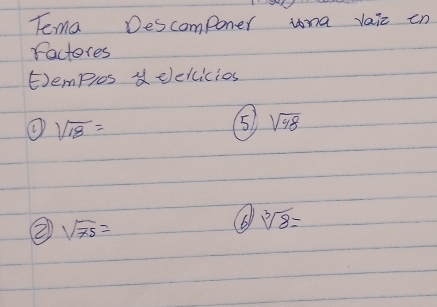 Tema Descomponer una raiz en
Factores
Ejemplos y ejercicios
① √18 =
⑤ √98
② √75 =
⑥ ∛8 =